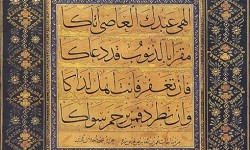 الهي عبدك العاصي اتاكا
مقرا بالذنوب وقد دعاكا
فان تغفر فانت لذاك اهل
وان تطرد فمن يرحم سواكا